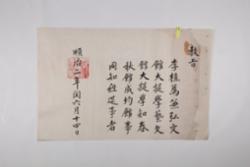 教旨
李植爲兼弘文
館大提學藝文
館大提學知春
秋館成均館事
同知經筵事者
順治二年閏六月十四日